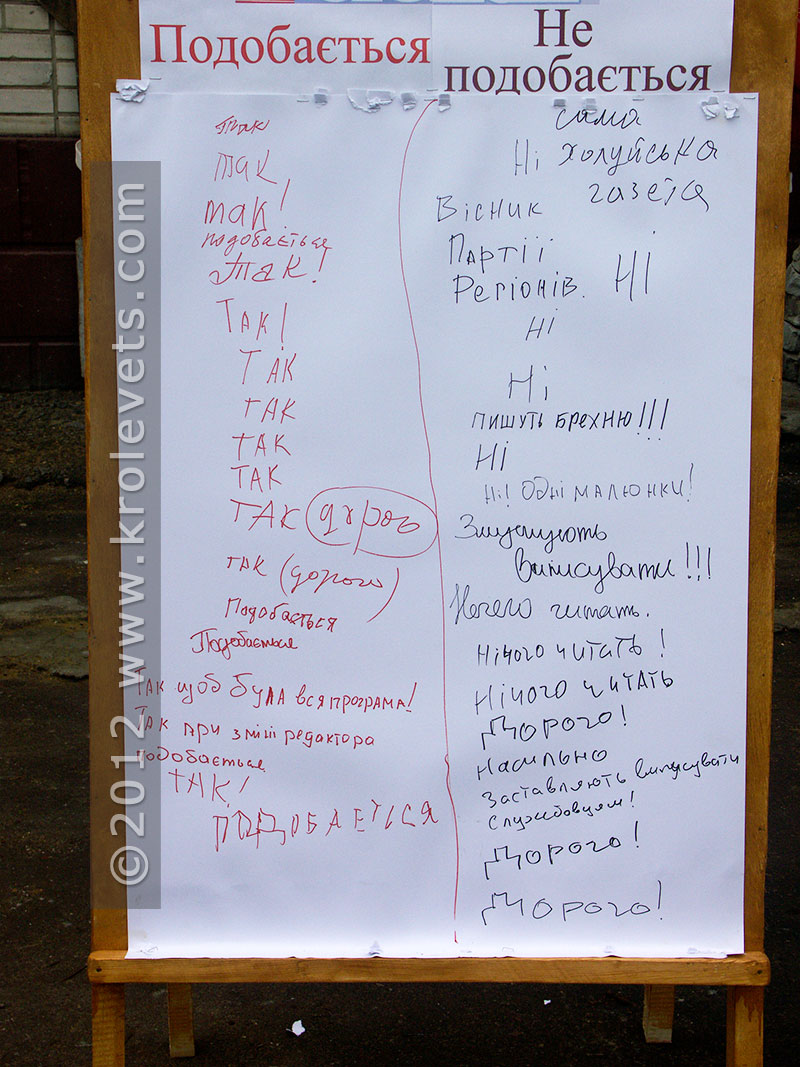 Подобається
так
так
так!
подобається
Так!
Так!
ТАК
ТАК
ТАК
ТАК
ТАК дорого
так (дорого)
Подобається
Подобається
Так щоб була вся програма!
Так при зміні редактора
подобається
ТАК!
ПОДОБАЕТЬСЯ
Не
подобається
сама
Ні холуйська
газета
Вісник
Партії
Регіонів. Ні
Ні
Ні
пишуть брехню!!!
Ні
Ні! Одні малюнки!
Змушують
виписувати!!!
Нечего читать.
Нічого читать!
Нічого читать
Дорого!
Насильно
заставляють виписувати
службовцям!
Дорого!
Дорого!
©2012 www.krolevets.com